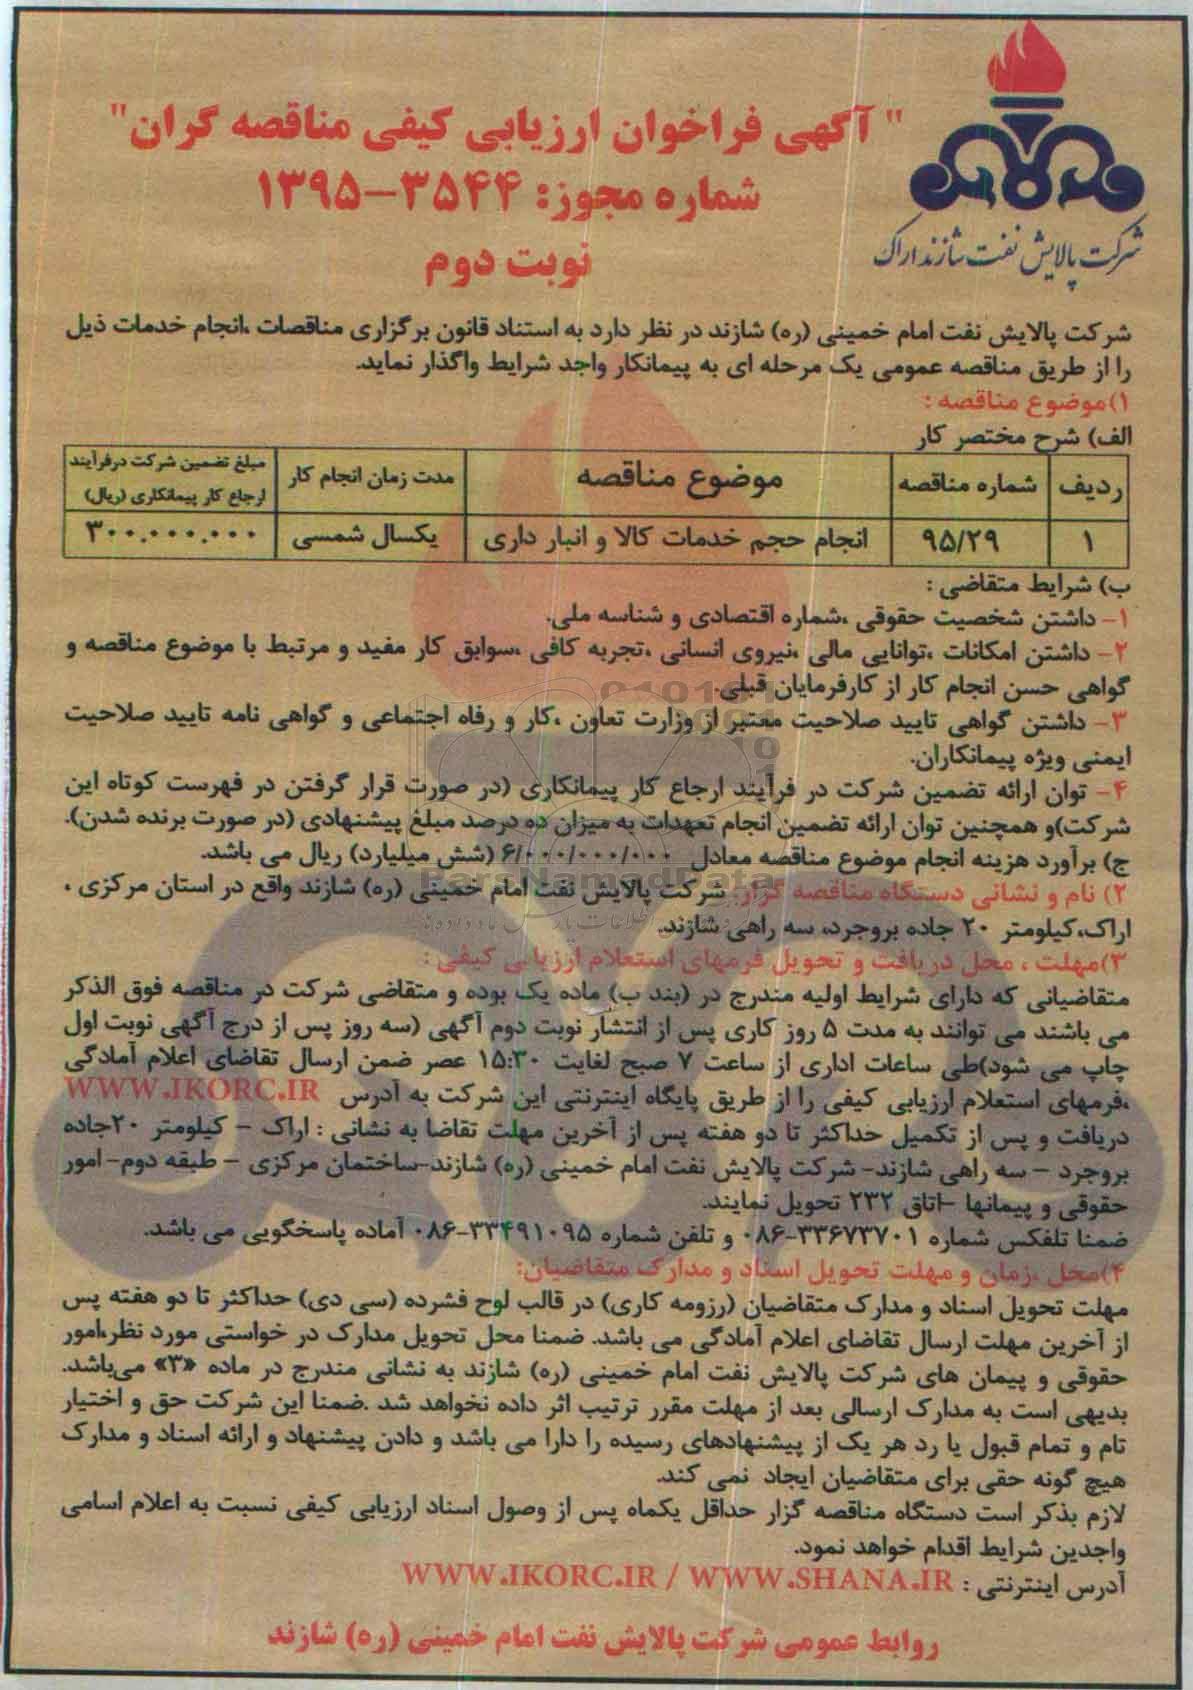 شرکت پالایش نفت شازند اراک
" آگهی فراخوان ارزیابی کیفی مناقصه گران"
شماره مجوز: ۳۵۴۴-۱۳۹۵
نوبت دوم
شرکت پالایش نفت امام خمینی (ره) شازند در نظر دارد به استناد قانون برگزاری مناقصات ،انجام خدمات ذیل
را از طریق مناقصه عمومی یک مرحله ای به پیمانکار واجد شرایط واگذار نماید.
۱)موضوع مناقصه :
الف) شرح مختصر کار
ردیف | شماره مناقصه | موضوع مناقصه | مدت زمان انجام کار | مبلغ تضمین شرکت درفرآیند ارجاع کار پیمانکاری (ریال)
۱ | ۹۵/۲۹ | انجام حجم خدمات کالا و انبار داری | یکسال شمسی | ۳۰۰.۰۰۰.۰۰۰
ب) شرایط متقاضی :
۱- داشتن شخصیت حقوقی ،شماره اقتصادی و شناسه ملی.
۲- داشتن امکانات ،توانایی مالی ،نیروی انسانی ،تجربه کافی ،سوابق کار مفید و مرتبط با موضوع مناقصه و
گواهی حسن انجام کار از کارفرمایان قبلی.
۳- داشتن گواهی تایید صلاحیت معتبر از وزارت تعاون ،کار و رفاه اجتماعی و گواهی نامه تایید صلاحیت
ایمنی ویژه پیمانکاران.
۴- توان ارائه تضمین شرکت در فرآیند ارجاع کار پیمانکاری (در صورت قرار گرفتن در فهرست کوتاه این
شرکت)و همچنین توان ارائه تضمین انجام تعهدات به میزان ده درصد مبلغ پیشنهادی (در صورت برنده شدن).
ج) برآورد هزینه انجام موضوع مناقصه معادل ۶/۰۰۰/۰۰۰/۰۰۰ (شش میلیارد) ریال می باشد.
ParsNamadData
۲) نام و نشانی دستگاه مناقصه گزار: شرکت پالایش نفت امام خمینی (ره) شازند واقع در استان مرکزی ،
اراک،کیلومتر ۲۰ جاده بروجرد، سه راهی شازند.
۳)مهلت ، محل دریافت و تحویل فرمهای استعلام ارزیابی کیفی :
متقاضیانی که دارای شرایط اولیه مندرج در (بند ب) ماده یک بوده و متقاضی شرکت در مناقصه فوق الذکر
می باشند می توانند به مدت ۵ روز کاری پس از انتشار نوبت دوم آگهی (سه روز پس از درج آگهی نوبت اول
چاپ می شود)طی ساعات اداری از ساعت ۷ صبح لغایت ۱۵:۳۰ عصر ضمن ارسال تقاضای اعلام آمادگی
،فرمهای استعلام ارزیابی کیفی را از طریق پایگاه اینترنتی این شرکت به آدرس WWW.IKORC.IR
دریافت و پس از تکمیل حداکثر تا دو هفته پس از آخرین مهلت تقاضا به نشانی : اراک - کیلومتر ۲۰جاده
بروجرد - سه راهی شازند- شرکت پالایش نفت امام خمینی (ره) شازند-ساختمان مرکزی - طبقه دوم- امور
حقوقی و پیمانها -اتاق ۲۳۲ تحویل نمایند.
ضمنا تلفکس شماره ۳۳۶۷۳۷۰۱-۰۸۶ و تلفن شماره ۳۳۴۹۱۰۹۵-۰۸۶ آماده پاسخگویی می باشد.
۴)محل ،زمان و مهلت تحویل اسناد و مدارک متقاضیان:
مهلت تحویل اسناد و مدارک متقاضیان (رزومه کاری) در قالب لوح فشرده (سی دی) حداکثر تا دو هفته پس
از آخرین مهلت ارسال تقاضای اعلام آمادگی می باشد. ضمنا محل تحویل مدارک در خواستی مورد نظر،امور
حقوقی و پیمان های شرکت پالایش نفت امام خمینی (ره) شازند به نشانی مندرج در ماده «۳» می‌باشد.
بدیهی است به مدارک ارسالی بعد از مهلت مقرر ترتیب اثر داده نخواهد شد .ضمنا این شرکت حق و اختیار
تام و تمام قبول یا رد هر یک از پیشنهادهای رسیده را دارا می باشد و دادن پیشنهاد و ارائه اسناد و مدارک
هیچ گونه حقی برای متقاضیان ایجاد نمی کند.
لازم بذکر است دستگاه مناقصه گزار حداقل یکماه پس از وصول اسناد ارزیابی کیفی نسبت به اعلام اسامی
واجدین شرایط اقدام خواهد نمود.
آدرس اینترنتی : WWW.IKORC.IR / WWW.SHANA.IR
روابط عمومی شرکت پالایش نفت امام خمینی (ره) شازند